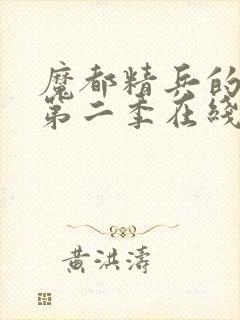 魔都精兵的
第二季在线
黄洪涛